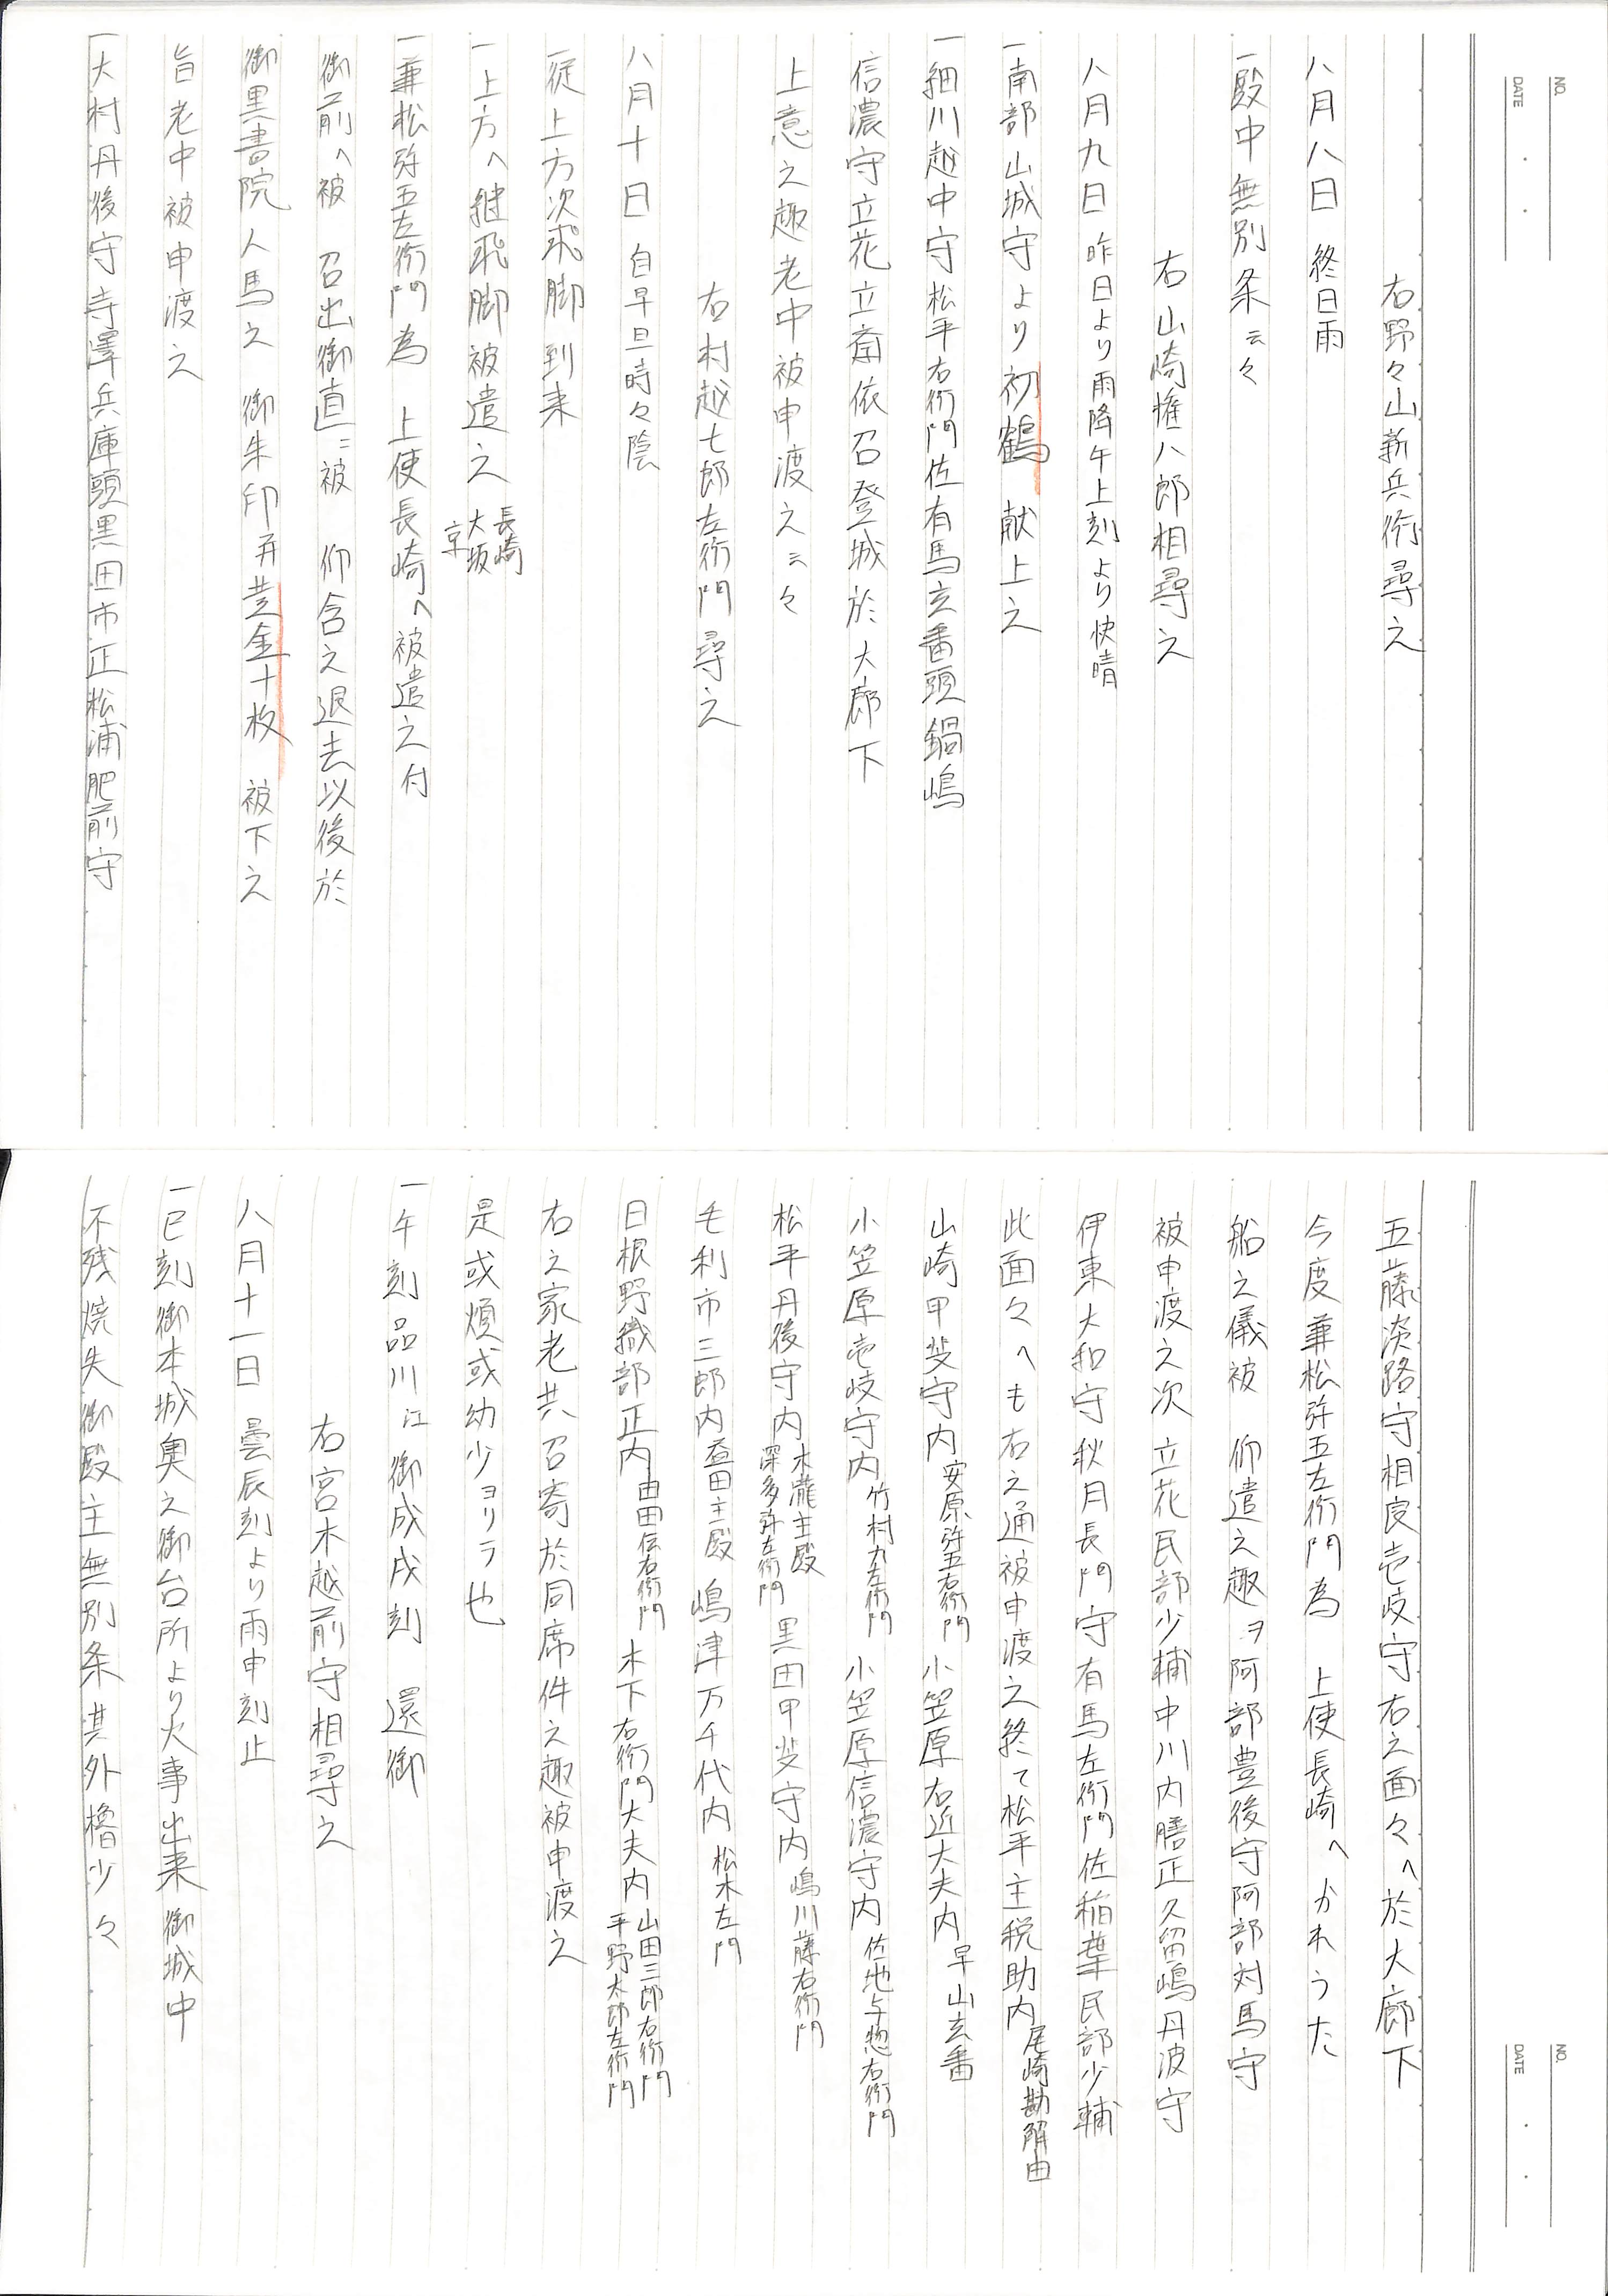 NO.
DATE
右野々山新兵衛尋之
八月八日 終日雨
一殿中無別条云々
右山崎権八郎相尋之
八月九日 昨日より雨降午上刻より快晴
一南部山城守より初鶴 献上之
一細川越中守松平右衛門佐有馬玄番頭鍋嶋
信濃守立花立斎依召登城於大廊下
上意之趣老中被申渡之云々
右村越七郎左衛門尋之
八月十日 自早旦時々陰
一従上方次飛脚到来
一上方へ継飛脚被遣之 長崎 大坂 京
一兼松弥五左衛門為 上使長崎へ被遣之付
御前へ被 召出御直ニ被 仰含之退去以後於
御黒書院人馬之 御朱印并黄金十枚 被下之
旨老中被申渡之
一大村丹後守寺澤兵庫頭黒田市正松浦肥前守
NO.
DATE
五藤淡路守相良壱岐守右之面々へ於大廊下
今度兼松弥五左衛門為 上使長崎へかれうた
船之儀被 仰遣之趣ヲ阿部豊後守阿部対馬守
被申渡之次立花民部少輔中川内膳正久留嶋丹波守
伊東大和守秋月長門守有馬左衛門佐稲葉民部少輔
此面々へも右之通被申渡之終て松平主税助内尾崎勘解由
山崎甲斐守内安原弥五右衛門 小笠原右近大夫内早山玄番
小笠原壱岐守内竹村力左衛門 小笠原信濃守内佐地与惣右衛門
松平丹後守内木瀧主殿 深多弥左衛門 黒田甲斐守内嶋川藤右衛門
毛利市三郎内益田主殿 嶋津万千代内松木左門
日根野織部正内由田伝右衛門 木下右衛門大夫内山田三郎右衛門 平野太郎左衛門
右之家老共召寄於同席件之趣被申渡之
是或煩或幼少ヨリテ也
一午刻品川江御成戌刻 還御
右宮木越前守相尋之
八月十一日 曇辰刻より雨申刻止
一巳刻御本城奥之御台所より火事出来御城中
不残焼失御殿主無別条其外櫓少々